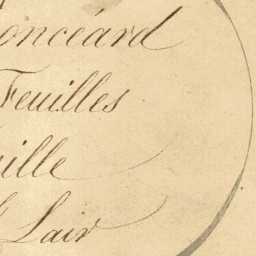 oncéard
Feuilles
ille
Lair